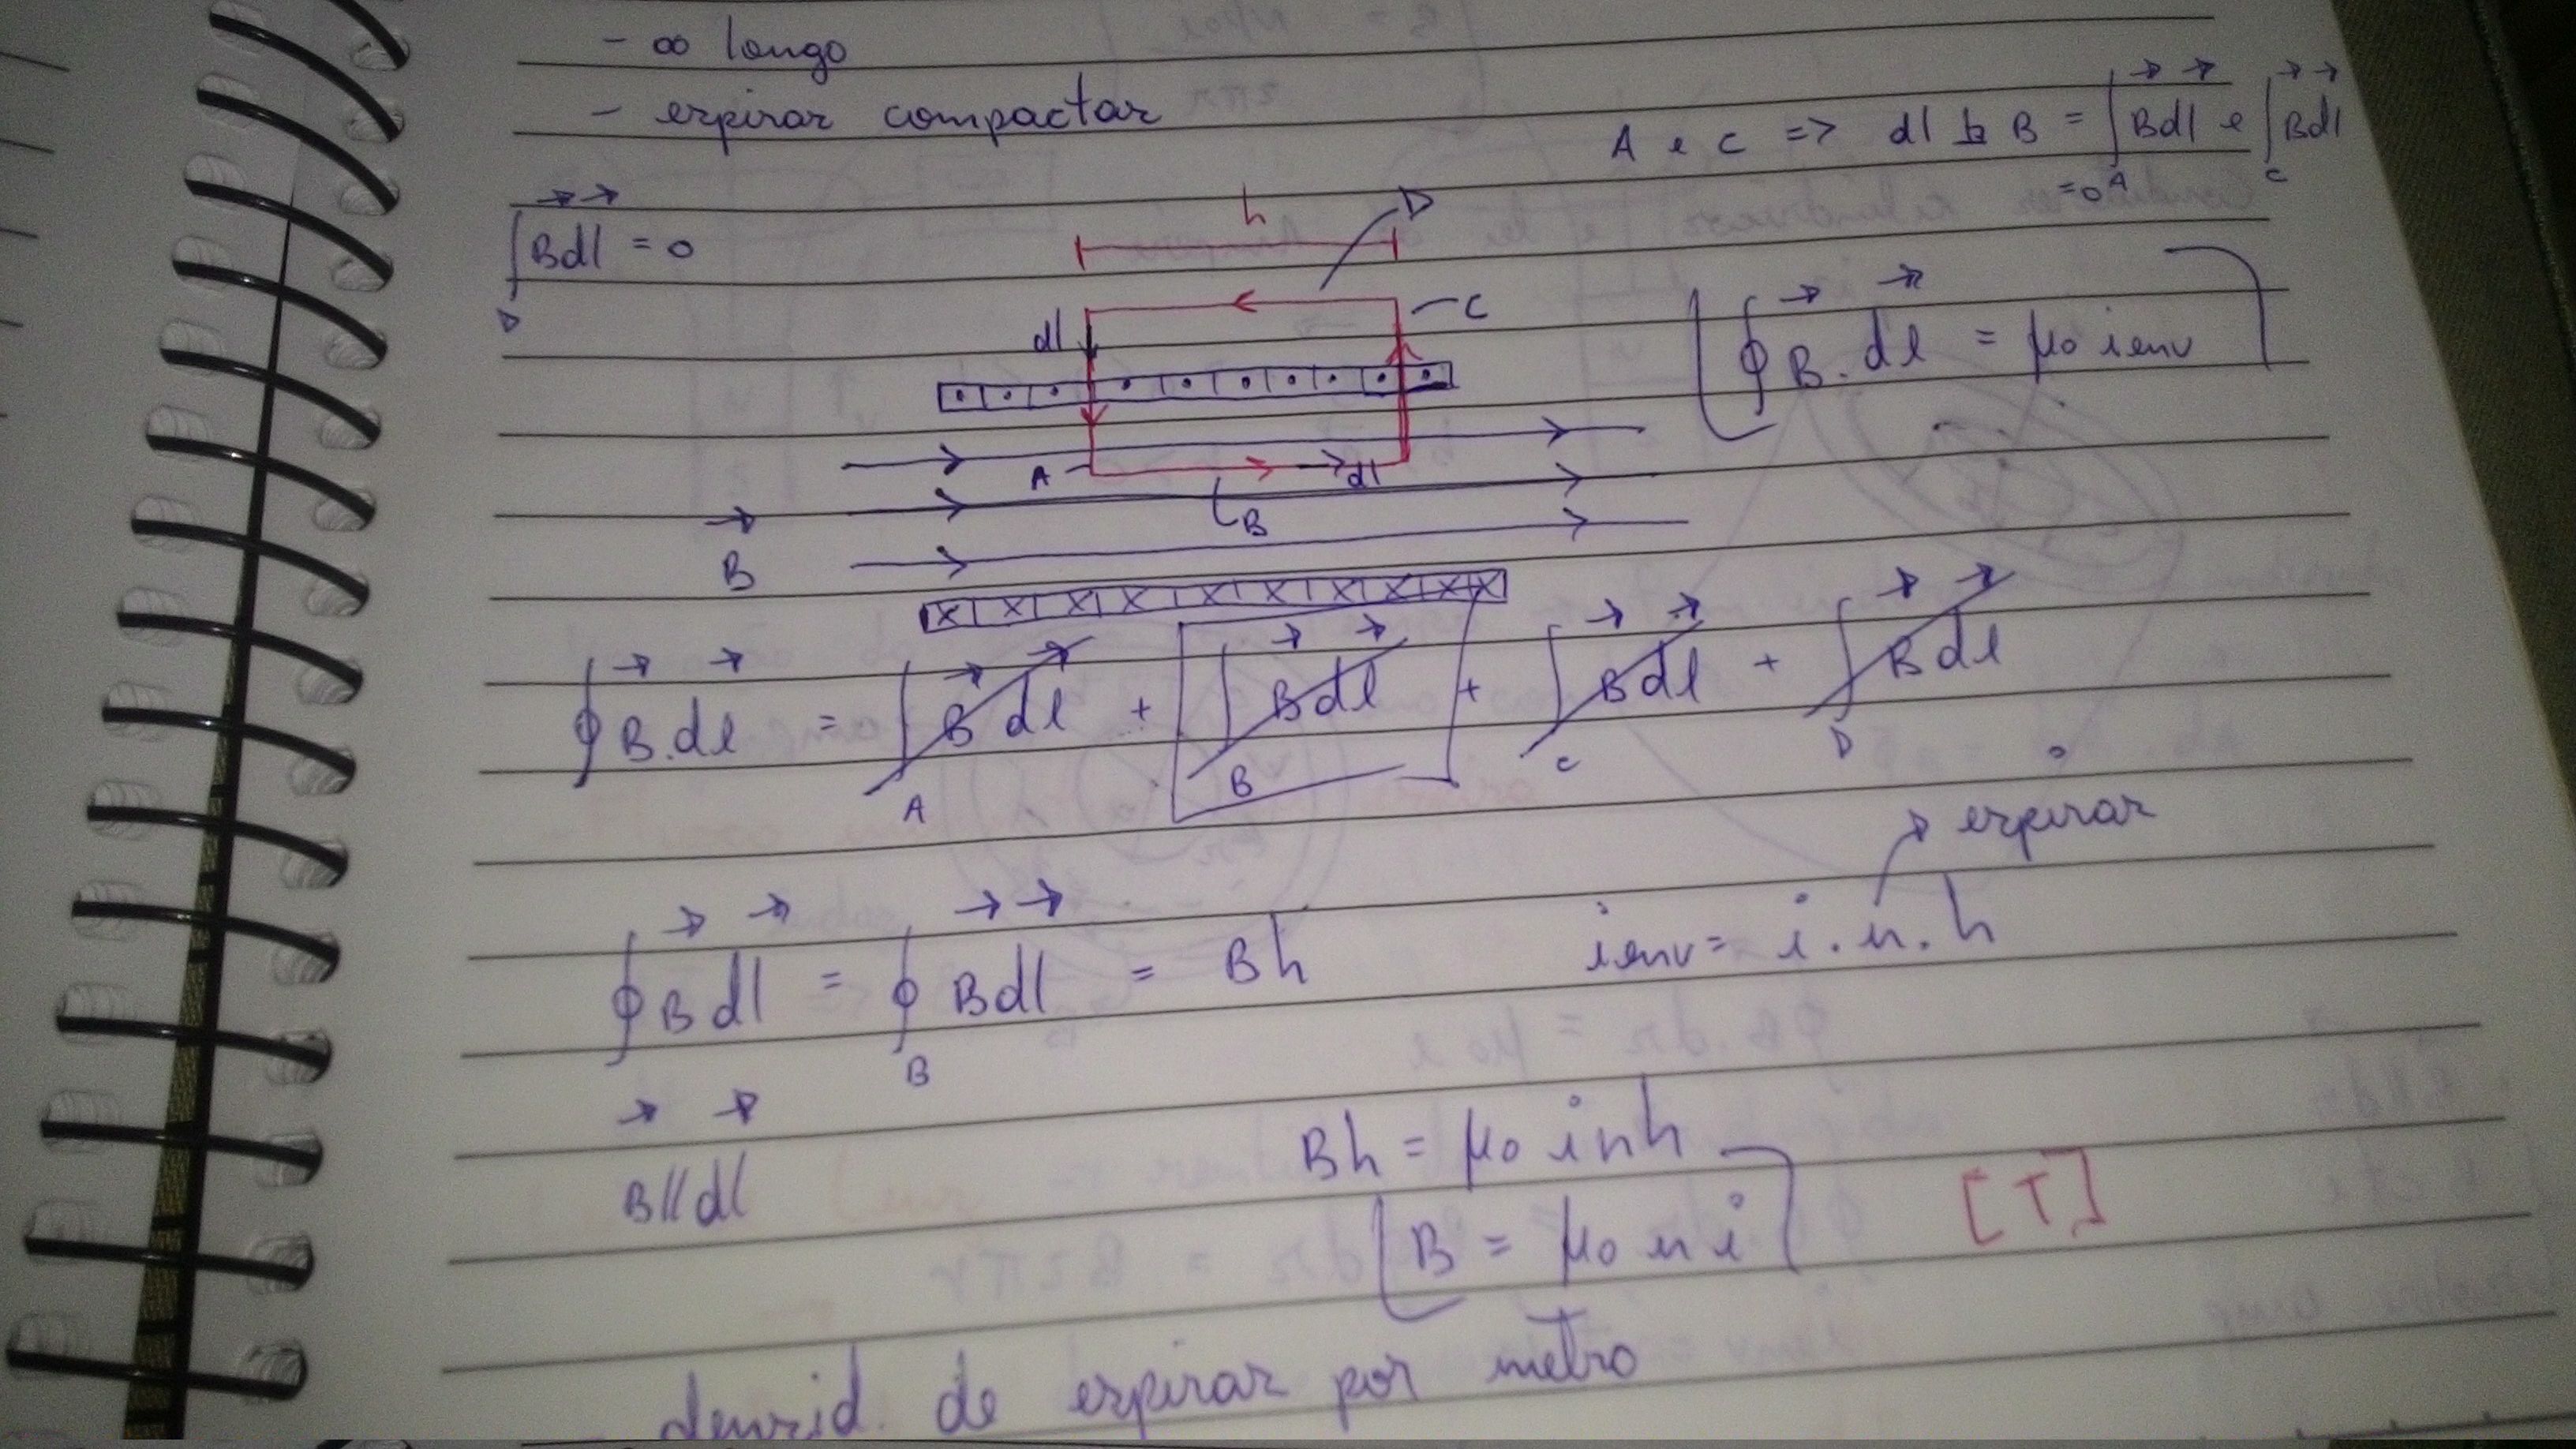 - ∞ longo
- espiras compactas
A e C => dl ⊥ B = ∫A B⃗ dl⃗ e ∫C B⃗ dl⃗
= 0
∫D B⃗ dl⃗ = 0
h
D
dl
C
∮ B⃗ . dl⃗ = μ0 ienv
A
dl
B
B⃗
∮ B⃗ . dl⃗ = ∫A B⃗ dl⃗ + ∫B B⃗ dl⃗ + ∫C B⃗ dl⃗ + ∫D B⃗ dl⃗
espiras
∮ B⃗ dl⃗ = ∮B B⃗ dl⃗ = Bh
ienv = i . n . h
B⃗ // dl⃗
Bh = μ0 i n h
B = μ0 n i [T]
densid. de espiras por metro